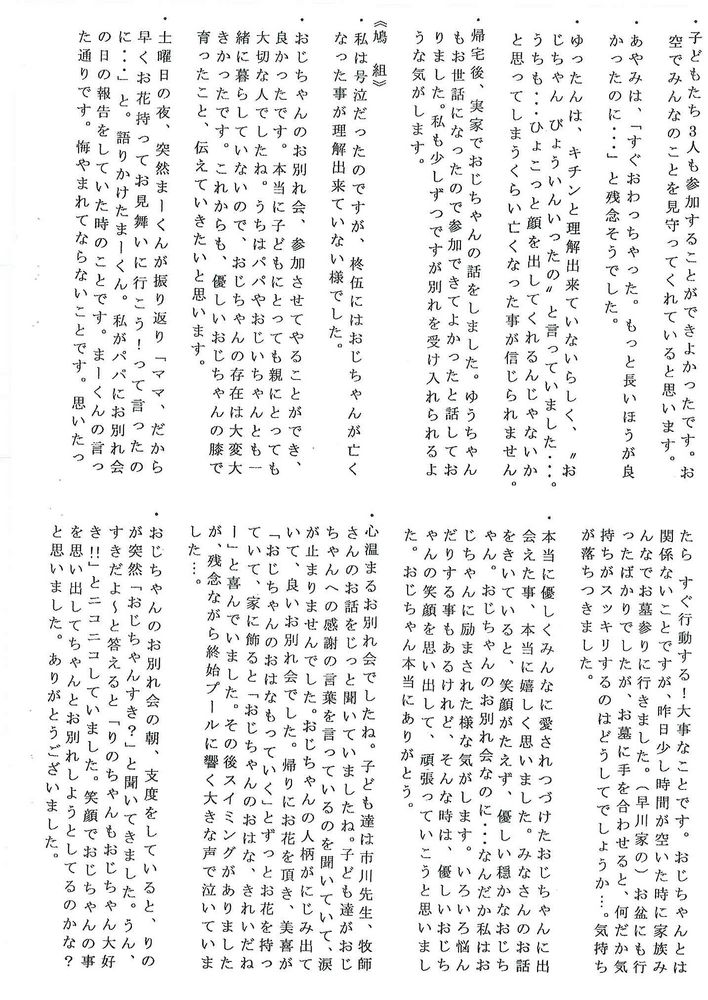 ・子どもたち3人も参加することができよかったです。お
空でみんなのことを見守ってくれていると思います。
・あやみは、「すぐおわっちゃった。もっと長いほうが良
かったのに・・・」と残念そうでした。
・ゆったんは、キチンと理解出来ていないらしく、〝お
じちゃん びょういんいったの〟と言っていました・・・。
うちも・・・ひょこっと顔を出してくれるんじゃないか
と思ってしまうくらい亡くなった事が信じられません。
・帰宅後、実家でおじちゃんの話をしました。ゆうちゃん
もお世話になったので参加できてよかったと話してお
りました。私も少しずつですが別れを受け入れられるよ
うな気がします。
《鳩 組》
・私は号泣だったのですが、柊伍にはおじちゃんが亡く
なった事が理解出来ていない様でした。
・おじちゃんのお別れ会、参加させてやることができ、
良かったです。本当に子どもにとっても親にとっても
大切な人でしたね。うちはパパやおじいちゃんとも一
緒に暮らしていないので、おじちゃんの存在は大変大
きかったです。これからも、優しいおじちゃんの膝で
育ったこと、伝えていきたいと思います。
・土曜日の夜、突然まーくんが振り返り「ママ、だから
早くお花持ってお見舞いに行こう！って言ったの
に・・・」と。語りかけたまーくん。私がパパにお別れ会
の日の報告をしていた時のことです。まーくんの言っ
た通りです。悔やまれてならないことです。思いたっ
たら すぐ行動する！大事なことです。おじちゃんとは
関係ないことですが、昨日少し時間が空いた時に家族み
んなでお墓参りに行きました。（早川家の）お盆にも行
ったばかりでしたが、お墓に手を合わせると、何だか気
持ちがスッキリするのはどうしてでしょうか…。気持ち
が落ちつきました。
・本当に優しくみんなに愛されつづけたおじちゃんに出
会えた事、本当に嬉しく思いました。みなさんのお話
をきいていると、笑顔がたえず、優しい穏かなおじち
ゃん。おじちゃんのお別れ会なのに・・・なんだか私はお
じちゃんに励まされた様な気がします。いろいろ悩ん
だりする事もあるけれど、そんな時は、優しいおじち
ゃんの笑顔を思い出して、頑張っていこうと思いまし
た。おじちゃん本当にありがとう。
・心温まるお別れ会でしたね。子ども達は市川先生、牧師
さんのお話をじっと聞いていましたね。子ども達がおじ
ちゃんへの感謝の言葉を言っているのを聞いていて、涙
が止まりませんでした。おじちゃんの人柄がにじみ出て
いて、良いお別れ会でした。帰りにお花を頂き、美喜が
「おじちゃんのおはなもっていく」とずっとお花を持っ
ていて、家に飾ると「おじちゃんのおはな、きれいだね
ー」と喜んでいました。その後スイミングがありました
が、残念ながら終始プールに響く大きな声で泣いていま
した…。
・おじちゃんのお別れ会の朝、支度をしていると、りの
が突然「おじちゃんすき？」と聞いてきました。うん、
すきだよ～と答えると「りのちゃんもおじちゃん大好
き!!」とニコニコしていました。笑顔でおじちゃんの事
を思い出してちゃんとお別れしようとしてるのかな？
と思いました。ありがとうございました。